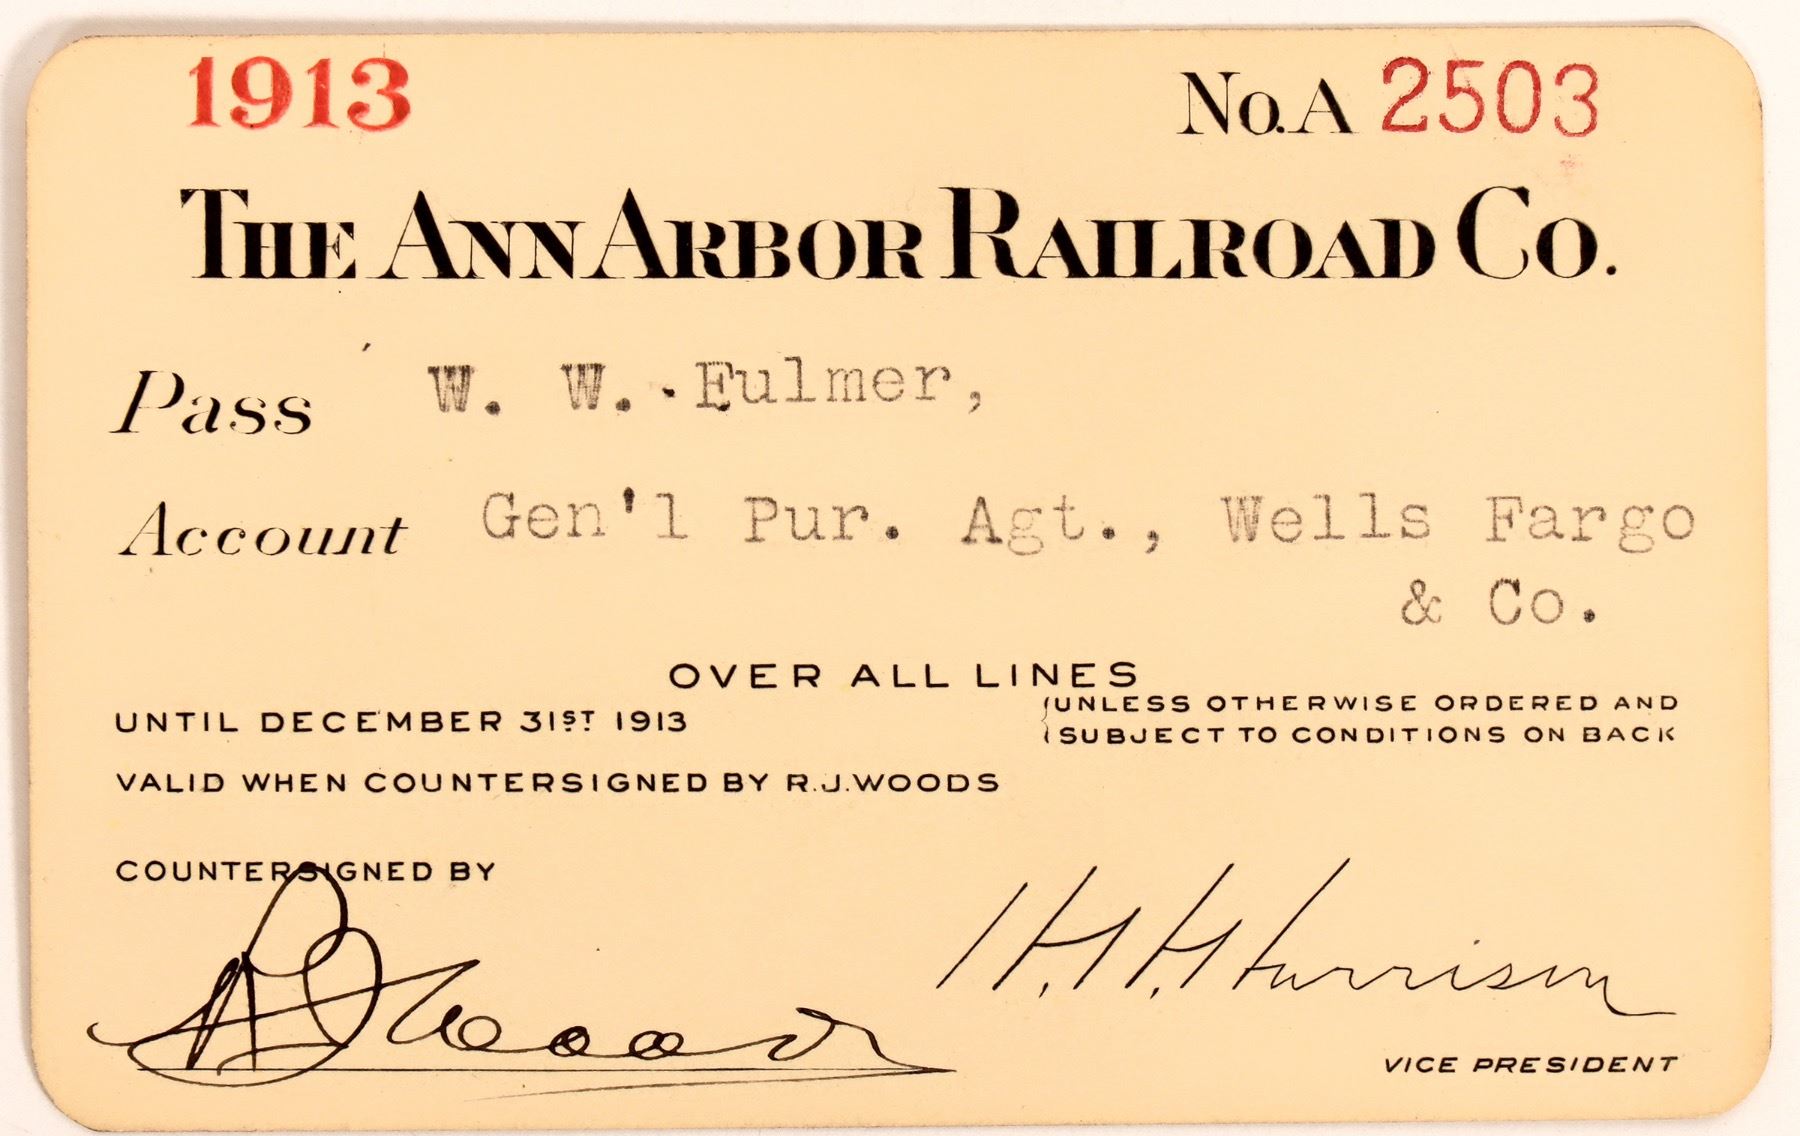 1913 No. A 2503
THE ANN ARBOR RAILROAD CO.
Pass W. W. Fulmer,
Account Gen'l Pur. Agt., Wells Fargo
& Co.
OVER ALL LINES
UNTIL DECEMBER 31ST 1913
UNLESS OTHERWISE ORDERED AND
SUBJECT TO CONDITIONS ON BACK
VALID WHEN COUNTERSIGNED BY R.J.WOODS
COUNTERSIGNED BY
R J Woods
H. H. Harrison
VICE PRESIDENT